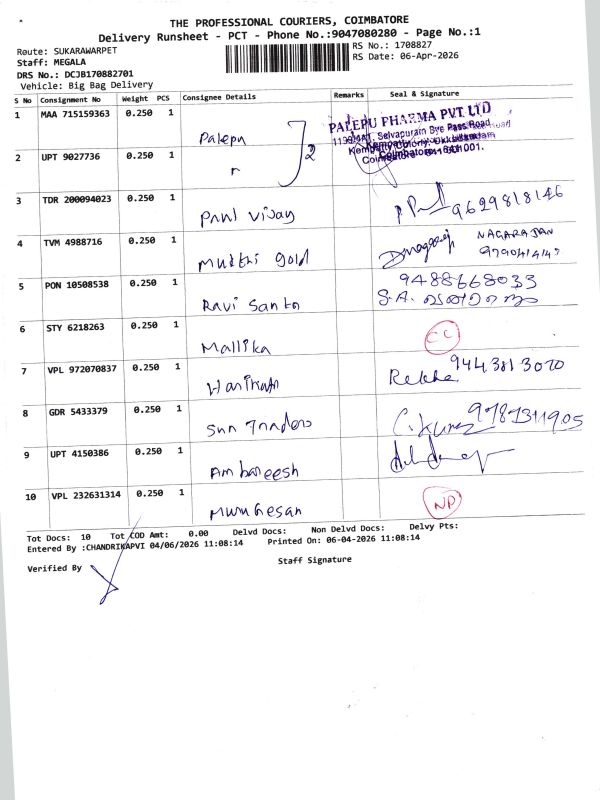 THE PROFESSIONAL COURIERS, COIMBATORE
Delivery Runsheet - PCT - Phone No.:9047080280 - Page No.:1
Route: SUKARAWARPET
RS No.: 1708827
Staff: MEGALA
RS Date: 06-Apr-2026
DRS No.: DCJB170882701
Vehicle: Big Bag Delivery
S No Consignment No Weight PCS Consignee Details Remarks Seal & Signature
1 MAA 715159363 0.250 1 Palepu
PALEPU PHARMA PVT. LTD
2 UPT 9027736 0.250 1 "
3 TDR 200094023 0.250 1 Paul Vijay 9629818146
4 TVM 4988716 0.250 1 Muthi gold NAGARAJAN
5 PON 10508538 0.250 1 Ravi Sankar 9488668033
6 STY 6218263 0.250 1 Mallika CC
7 VPL 972070837 0.250 1 Harikan Rekha 9443813070
8 GDR 5433379 0.250 1 Sun Traders 9787311905
9 UPT 4150386 0.250 1 Ambareesh
10 VPL 232631314 0.250 1 Murugesan NP
Tot Docs: 10 Tot COD Amt: 0.00 Delvd Docs: Non Delvd Docs: Delvy Pts:
Entered By :CHANDRIKAPVI 04/06/2026 11:08:14 Printed On: 06-04-2026 11:08:14
Verified By
Staff Signature